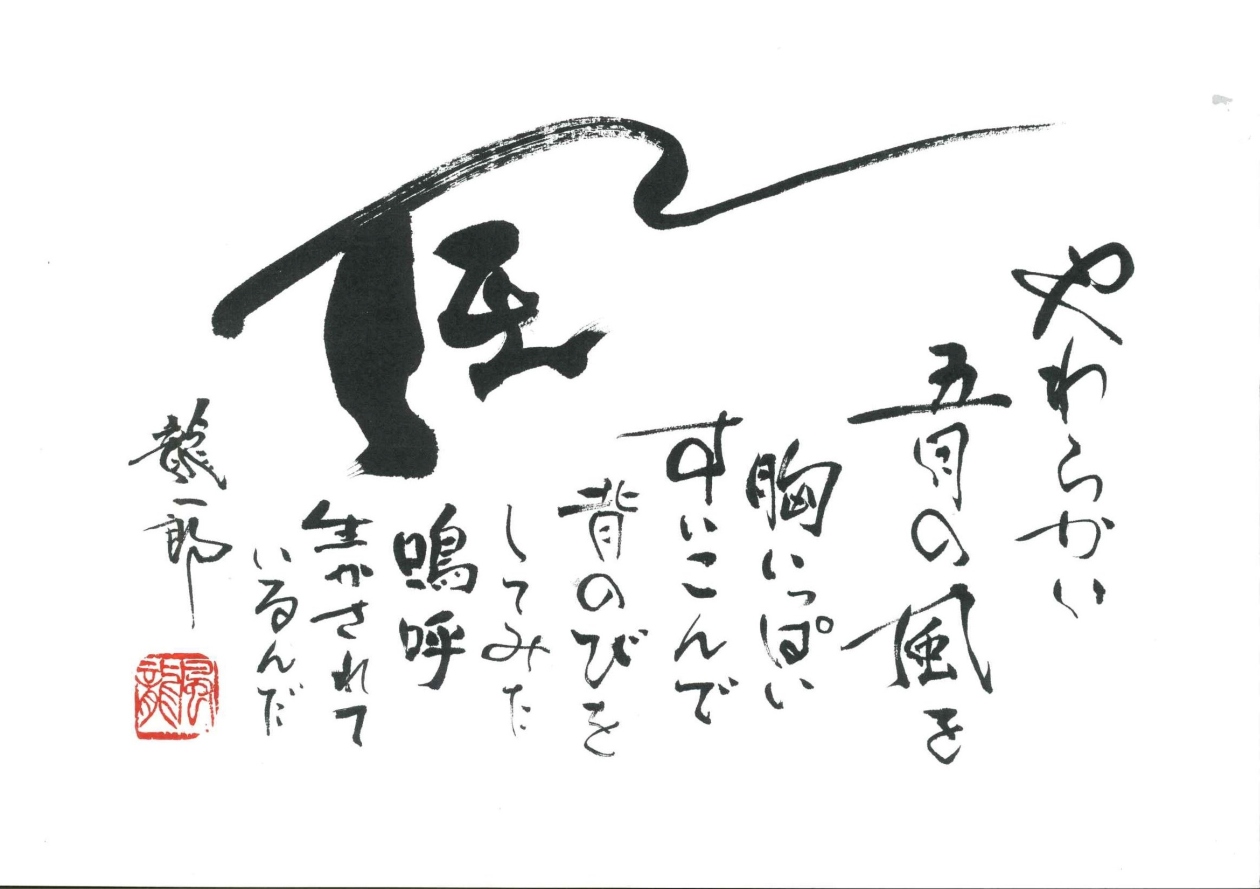 風
やわらかい
五月の風を
胸いっぱい
すいこんで
背のびを
してみた
嗚呼
生かされて
いるんだ
龍一郎
風龍